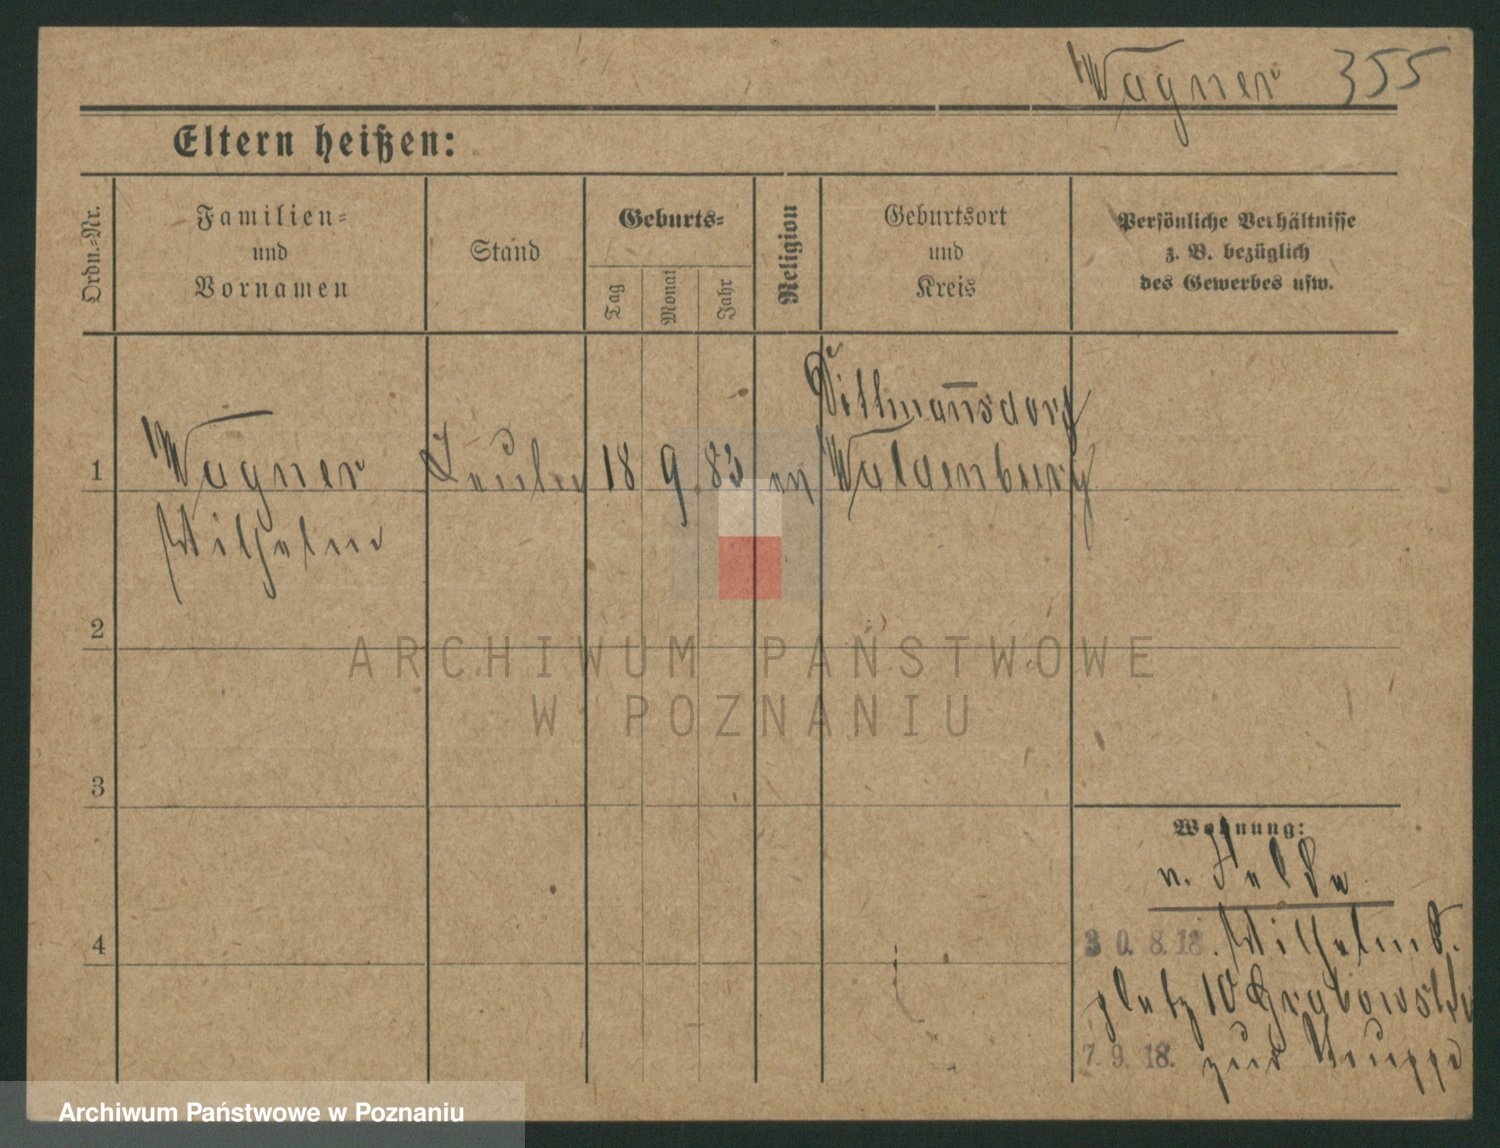 Wagner 355
Eltern heißen:
Ordn.=Nr.
Familien=
und
Vornamen
Stand
Geburts=
Tag
Monat
Jahr
Religion
Geburtsort
und
Kreis
Persönliche Verhältnisse
z. B. bezüglich
des Gewerbes usw.
Dittmannsdorf
1 Wagner 18 9 83 ev Waldenburg
Wilhelm
2
ARCHIWUM PAŃSTWOWE
W POZNANIU
3
Wohnung:
v. Felde
4
30. 8. 18. Wilhelms
platz 10 Grabowski
7. 9. 18. zur Truppe
Archiwum Państwowe w Poznaniu